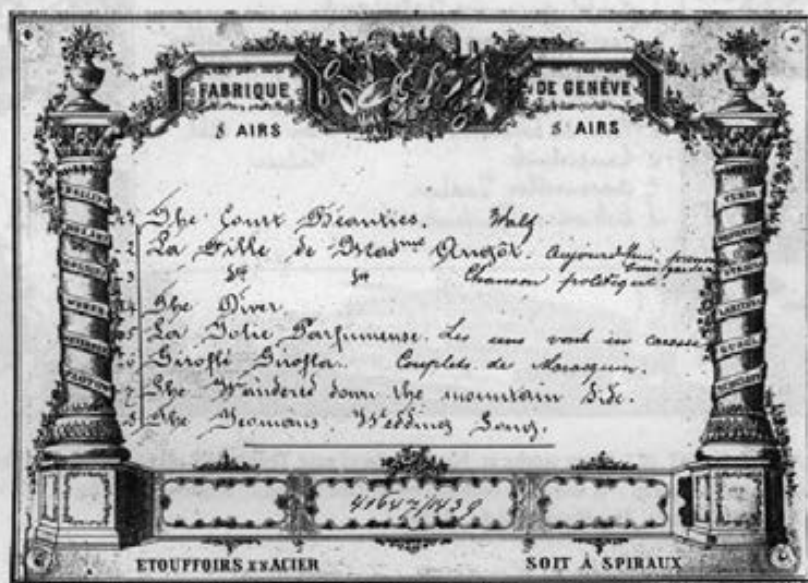 FABRIQUE DE GENÈVE
8 AIRS 8 AIRS
The Court Beauties. Walz
2 La Fille de Mad.me Angôt. Aujourd'hui prenons bien garde
3 do do Chanson politique.
4 The Diver
5 La Jolie Parfumeuse. Les uns vont in carosse
6 Giroflé Girofla. Couplets de Marasquin.
7 She Wandered down the mountain side.
8 The Yeomans Wedding Song.
BELLINI
MOZART
WEBER
VERDI
41647/1439
ETOUFFOIRS EN ACIER SOIT À SPIRAUX